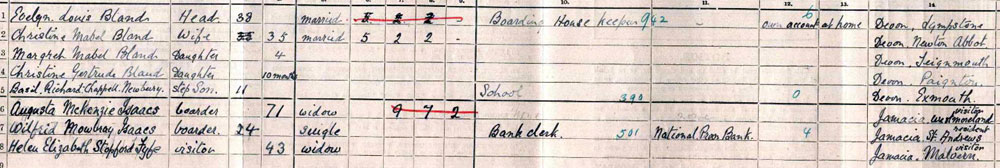 10. 12. 14.
1 Evelyn Louis Bland Head 38 married 5 2 2 - Boarding House Keeper 942 6 own account at home Devon, Lympstone
2 Christine Mabel Bland Wife 35 35 married 5 2 2 - Devon, Newton Abbot
3 Margret Mabel Bland Daughter 4 Devon, Teignmouth
4 Christine Gertrude Bland Daughter 10 months Devon Paignton
5 Basil, Richard Chappell, Newbury, step Son. 11 School 390 0 Devon. Exmouth.
6 Augusta McKenzie Isaacs boarder 71 widow 9 7 2 Jamacia, westmoreland visitor
7 Wilfrid Mowbray Isaacs boarder. 24 single Bank clerk. 501 National Prov Bank. 4 Jamacia St. Andrews resident
8 Helen Elizabeth Stopford Fyfe visitor 43 widow Jamacia. Malvern. visitor